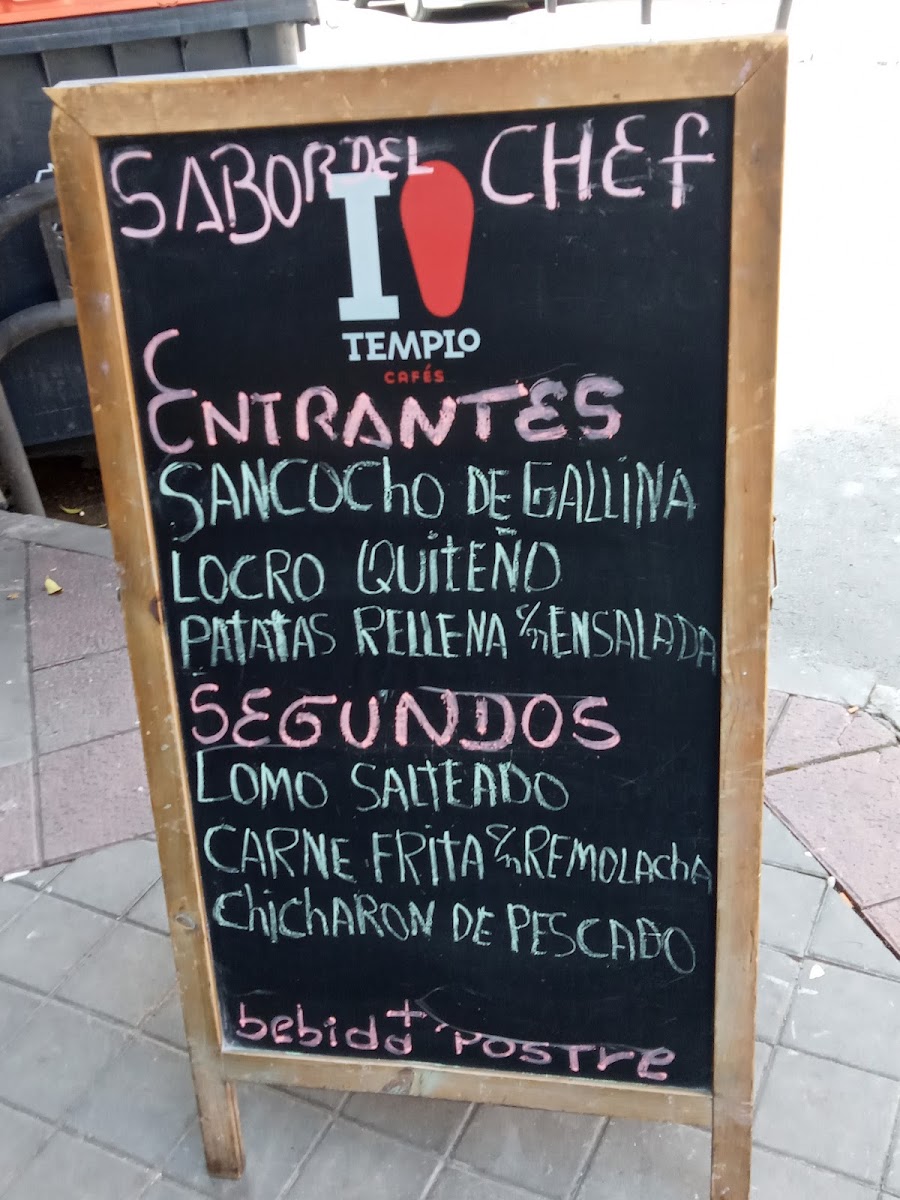 SABOR DEL CHEf
I
TEMPLO
CAFÉS
ENTRANTES
SANCOChO DE GALLiNA
LOCRO QUiTEÑO
PATATAS RELLENA c/n ENSALADA
SEGUNDOS
LOMO SALTEADO
CARNE FRITA c/n REMOLAChA
ChiChARON DE PESCADO
bebida + POSTre